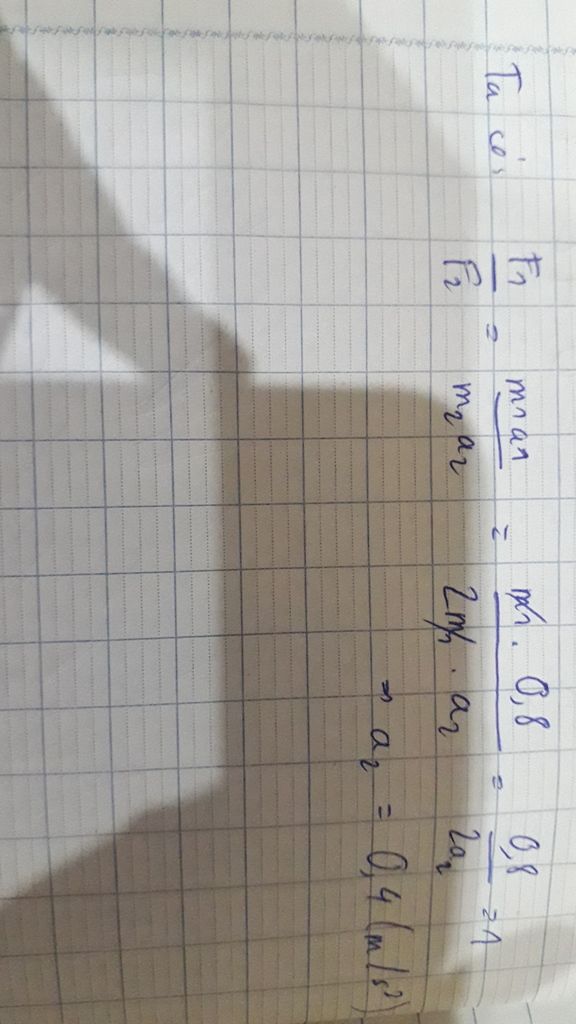 Ta có: F1/F2 = m1a1/m2a2 = m1 . 0,8/2m1 . a2 = 0,8/2a2 = 1
⇒ a2 = 0,4 (m/s²)